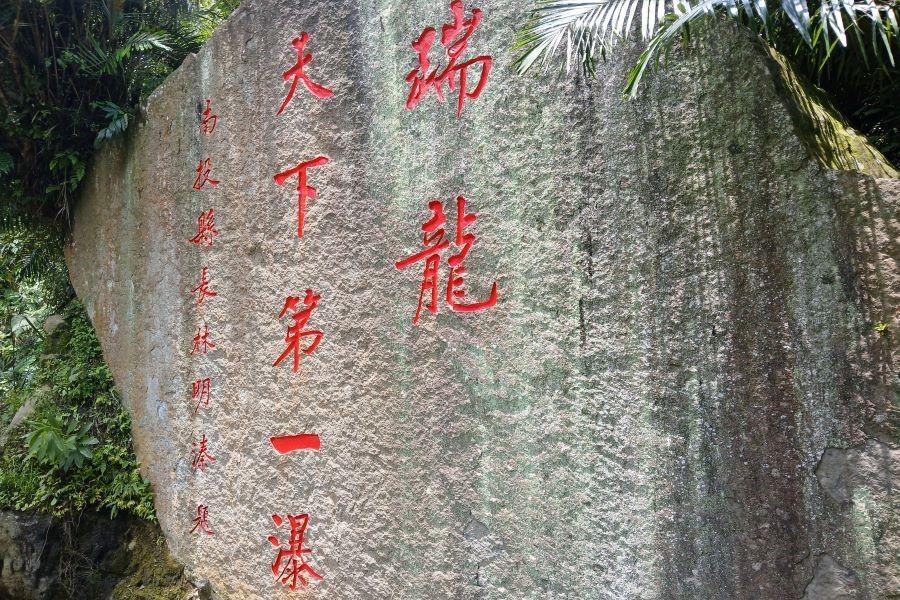 瑞龍
天下第一瀑
南投縣長林明溱題